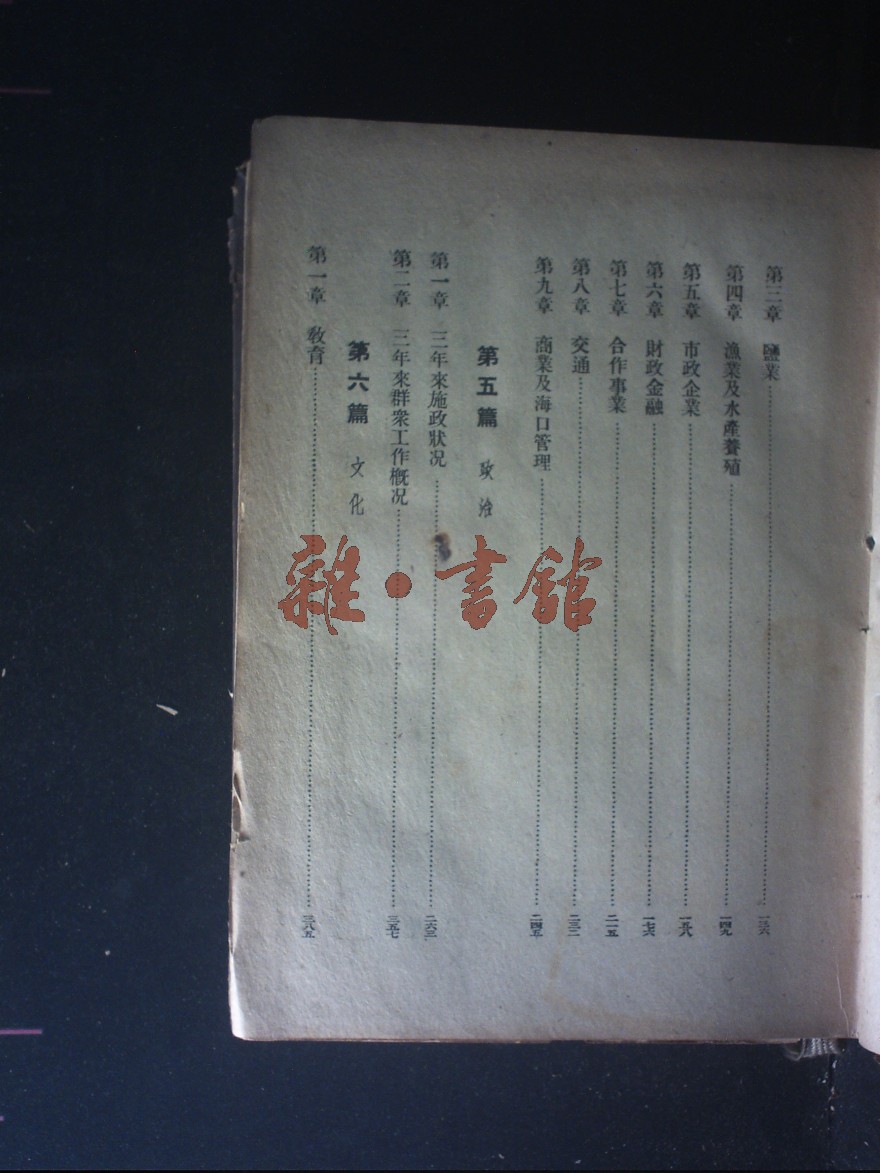 第三章 鹽業………一三六
第四章 漁業及水產養殖………一四九
第五章 市政企業………一五八
第六章 財政金融………一七六
第七章 合作事業………二一五
第八章 交通………二三二
第九章 商業及海口管理………二四五
第五篇 政治
第一章 三年來施政狀況………二六三
第二章 三年來群衆工作概况………三五七
第六篇 文化
第一章 教育………三八五
雜·書館